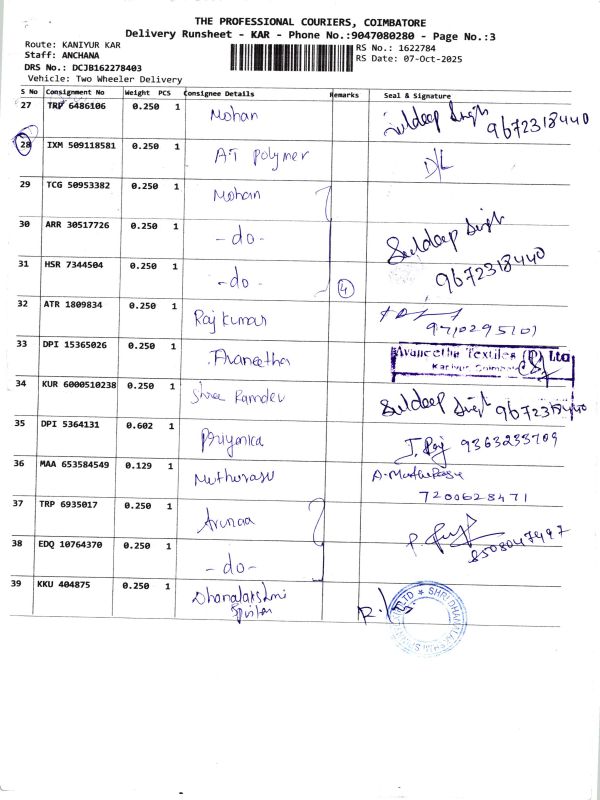 THE PROFESSIONAL COURIERS, COIMBATORE
Delivery Runsheet - KAR - Phone No.:9047080280 - Page No.:3
Route: KANIYUR KAR
RS No.: 1622784
Staff: ANCHANA
RS Date: 07-Oct-2025
DRS No.: DCJB162278403
Vehicle: Two Wheeler Delivery
S No Consignment No Weight PCS Consignee Details Remarks Seal & Signature
27 TRP 6486106 0.250 1 Mohan Suldeep Singh 9672318440
28 IXM 509118581 0.250 1 A.T polymer
29 TCG 50953382 0.250 1 Mohan
30 ARR 30517726 0.250 1 -do- Suldeep Singh
31 HSR 7344504 0.250 1 -do- 4 9672318440
32 ATR 1809834 0.250 1 Rajkumar
33 DPI 15365026 0.250 1 Avaneetha Avaneetha Textiles (P) Ltd
34 KUR 6000510238 0.250 1 Shree Ramdev Suldeep Singh 9672318440
35 DPI 5364131 0.602 1 Priyanka J. Raj 9363233709
36 MAA 653584549 0.129 1 Muthurasu
7200623471
37 TRP 6935017 0.250 1 Arunaa
8508047497
38 EDQ 10764370 0.250 1 -do-
39 KKU 404875 0.250 1 Dhanalakshmi